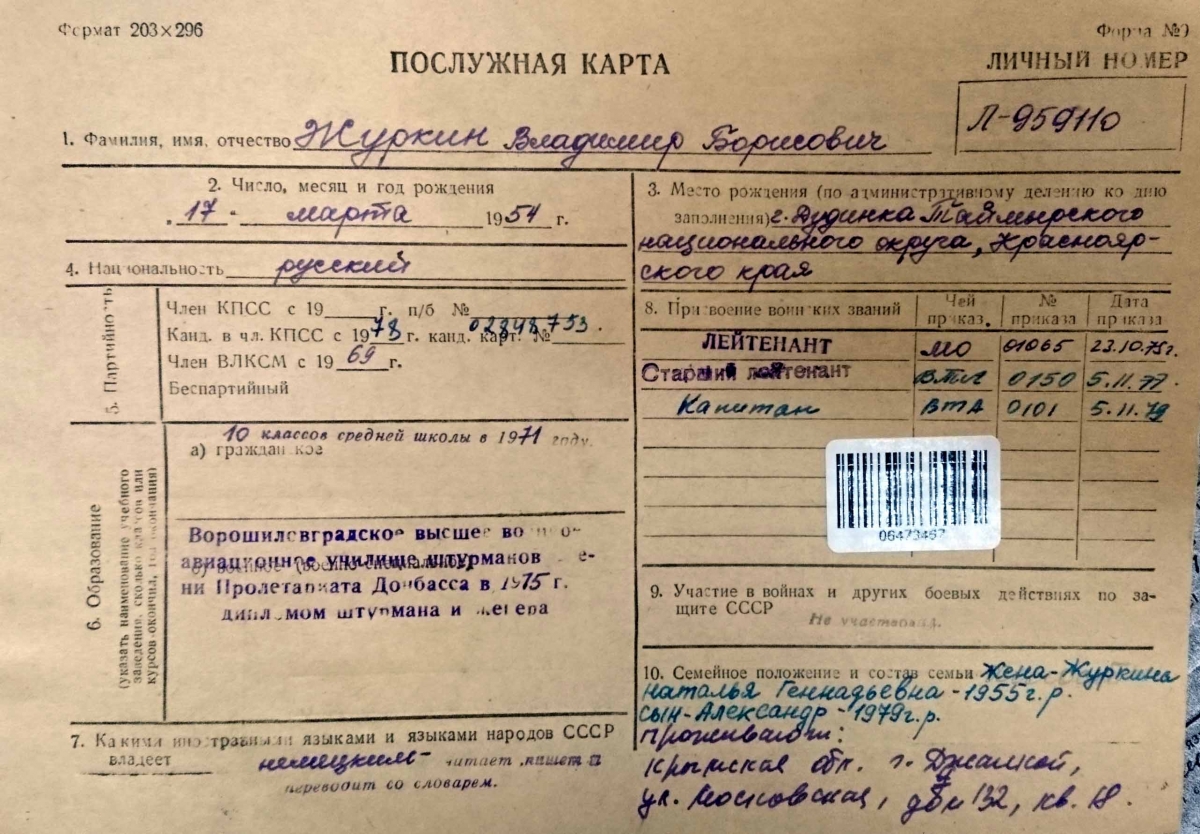 Формат 203×296
Форма №9
ПОСЛУЖНАЯ КАРТА
ЛИЧНЫЙ НОМЕР
Л-959110
1. Фамилия, имя, отчество Журкин Владимир Борисович
2. Число, месяц и год рождения
„17“ марта 1954 г.
3. Место рождения (по административному делению ко дню
заполнения) г. Дудинка Таймырского
национального округа, Краснояр-
ского края
4. Национальность русский
5. Партийность
Член КПСС с 19 г. п/б №
Канд. в чл. КПСС с 1978 г. канд. карт. № 02848753.
Член ВЛКСМ с 1969 г.
Беспартийный
6. Образование
(указать наименование учебного
заведения, сколько классов или
курсов окончил, год окончания)
10 классов средней школы в 1971 году.
а) гражданское
Ворошиловградское высшее военно-
авиационное училище штурманов
б) военное (военно-специальное)
ни Пролетариата Донбасса в 1975 г.
дипломом штурмана инженера
7. Какими иностранными языками и языками народов СССР
владеет немецким- читает, пишет и
переводит со словарем.
8. Присвоение воинских званий
Чей приказ.
№ приказа
Дата приказа
ЛЕЙТЕНАНТ МО 01065 23.10.75г.
Старший лейтенант ВТА 0150 5.11.77.
Капитан ВТА 0101 5.11.79
06473467
9. Участие в войнах и других боевых действиях по за-
щите СССР
Не участвовал.
10. Семейное положение и состав семьи Жена-Журкина
Наталья Геннадьевна-1955г.р.
сын-Александр-1979г.р.
Проживают:
Крымская обл. г. Джанкой,
ул. Московская, дом 132, кв. 18.